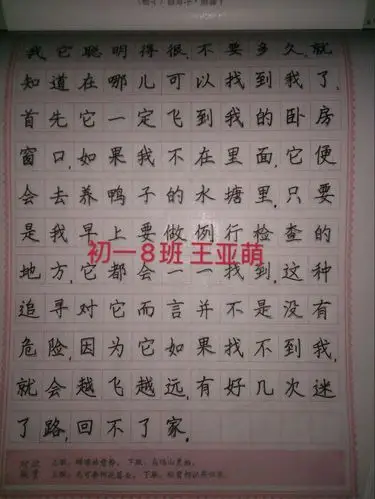 我它聪明得很,不要多久,就
知道在哪儿可以找到我了,
首先它一定飞到我的卧房
窗口,如果我不在里面,它便
会去养鸭子的水塘里,只要
是我早上要做例行检查的
地方,它都会一一找到,这种
初一8班 王亚萌
追寻对它而言并不是没有
危险,因为它如果找不到我,
就会越飞越远,有好几次迷
了路,回不了家.